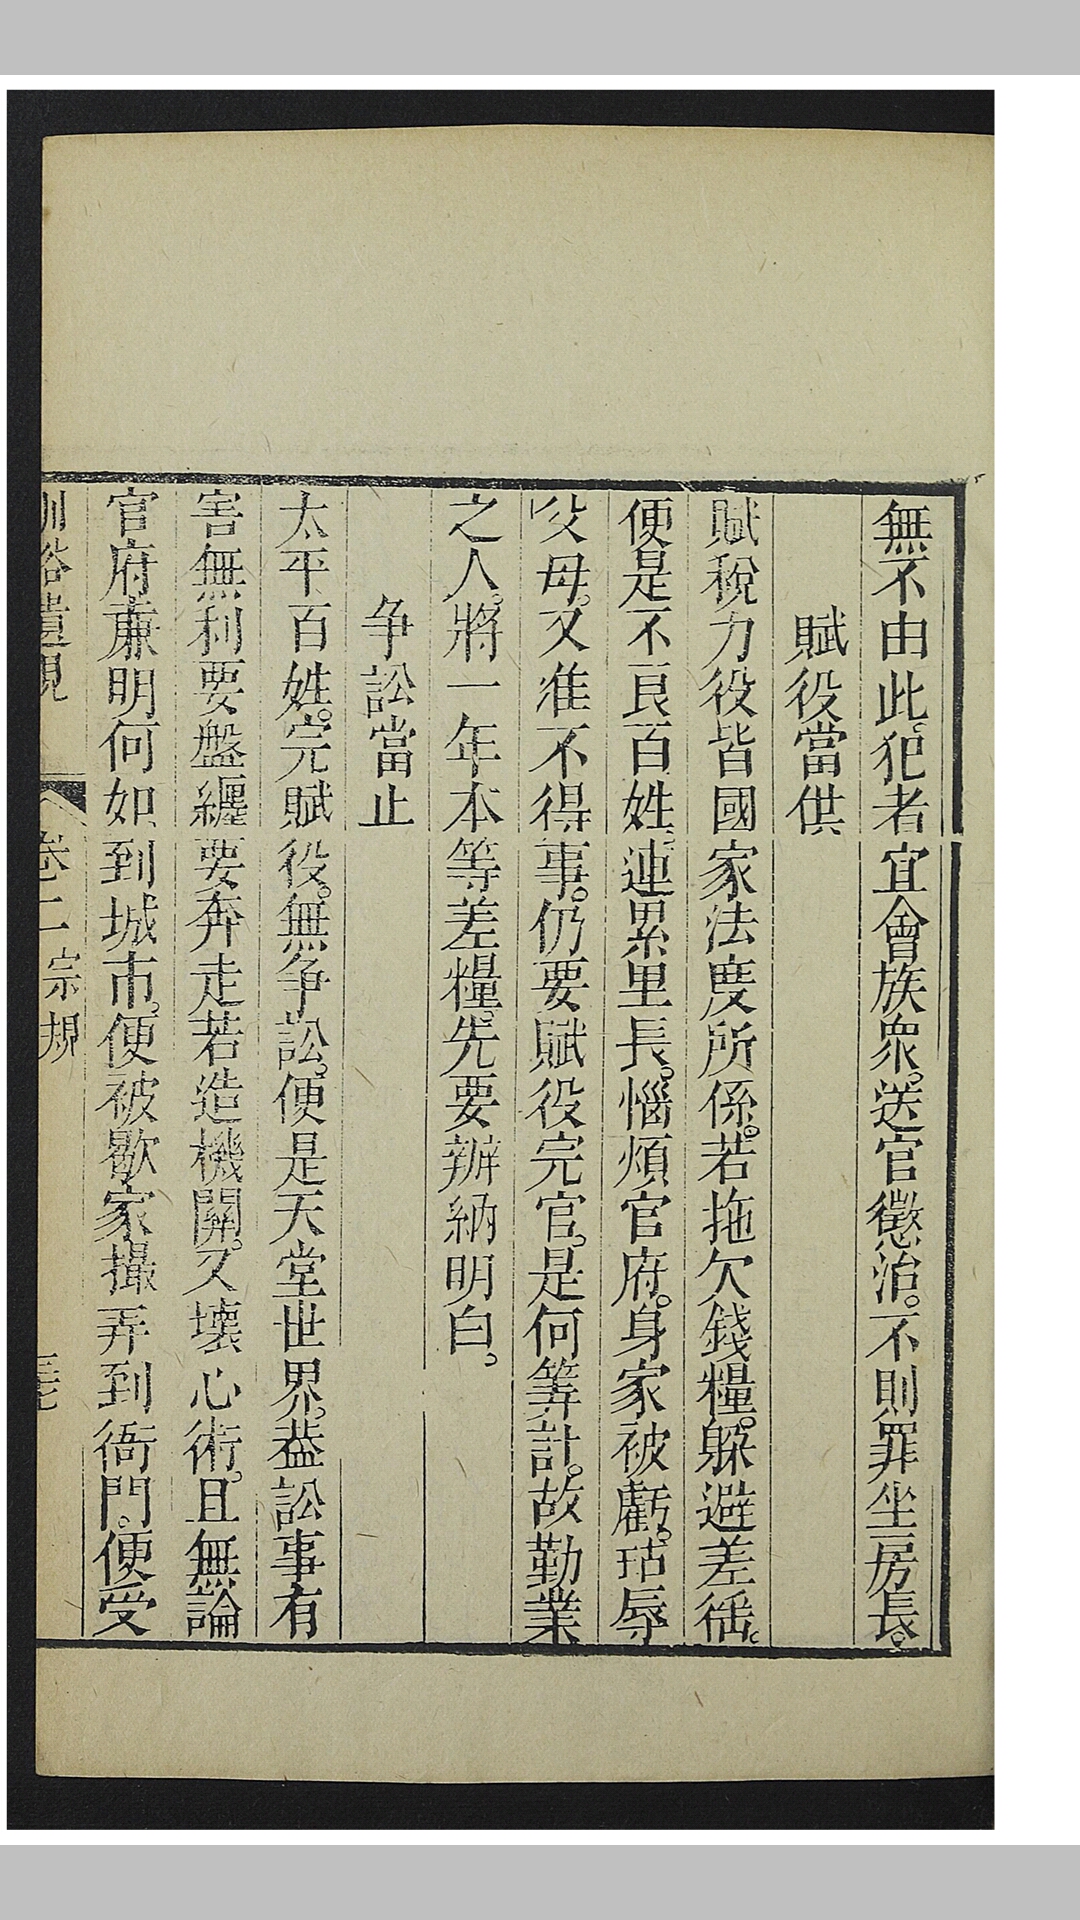 無不由此。犯者宜會族衆。送官懲治。不則罪坐房長。
賦役當供
賦稅力役皆國家法度所係。若拖欠錢糧。躲避差徭。
便是不良百姓。連累里長。惱煩官府。身家被虧。玷辱
父母。又准不得事。仍要賦役完官。是何筭計。故勤業
之人。將一年本等差糧。先要辦納明白。
争訟當止
太平百姓。完賦役。無争訟。便是天堂世界。葢訟事有
害無利要盤纏要奔走若造機關。又壞心術。且無論
官府亷明何如、到城市。便被歇家撮弄到衙門。便受
訓俗遺規
卷二宗規